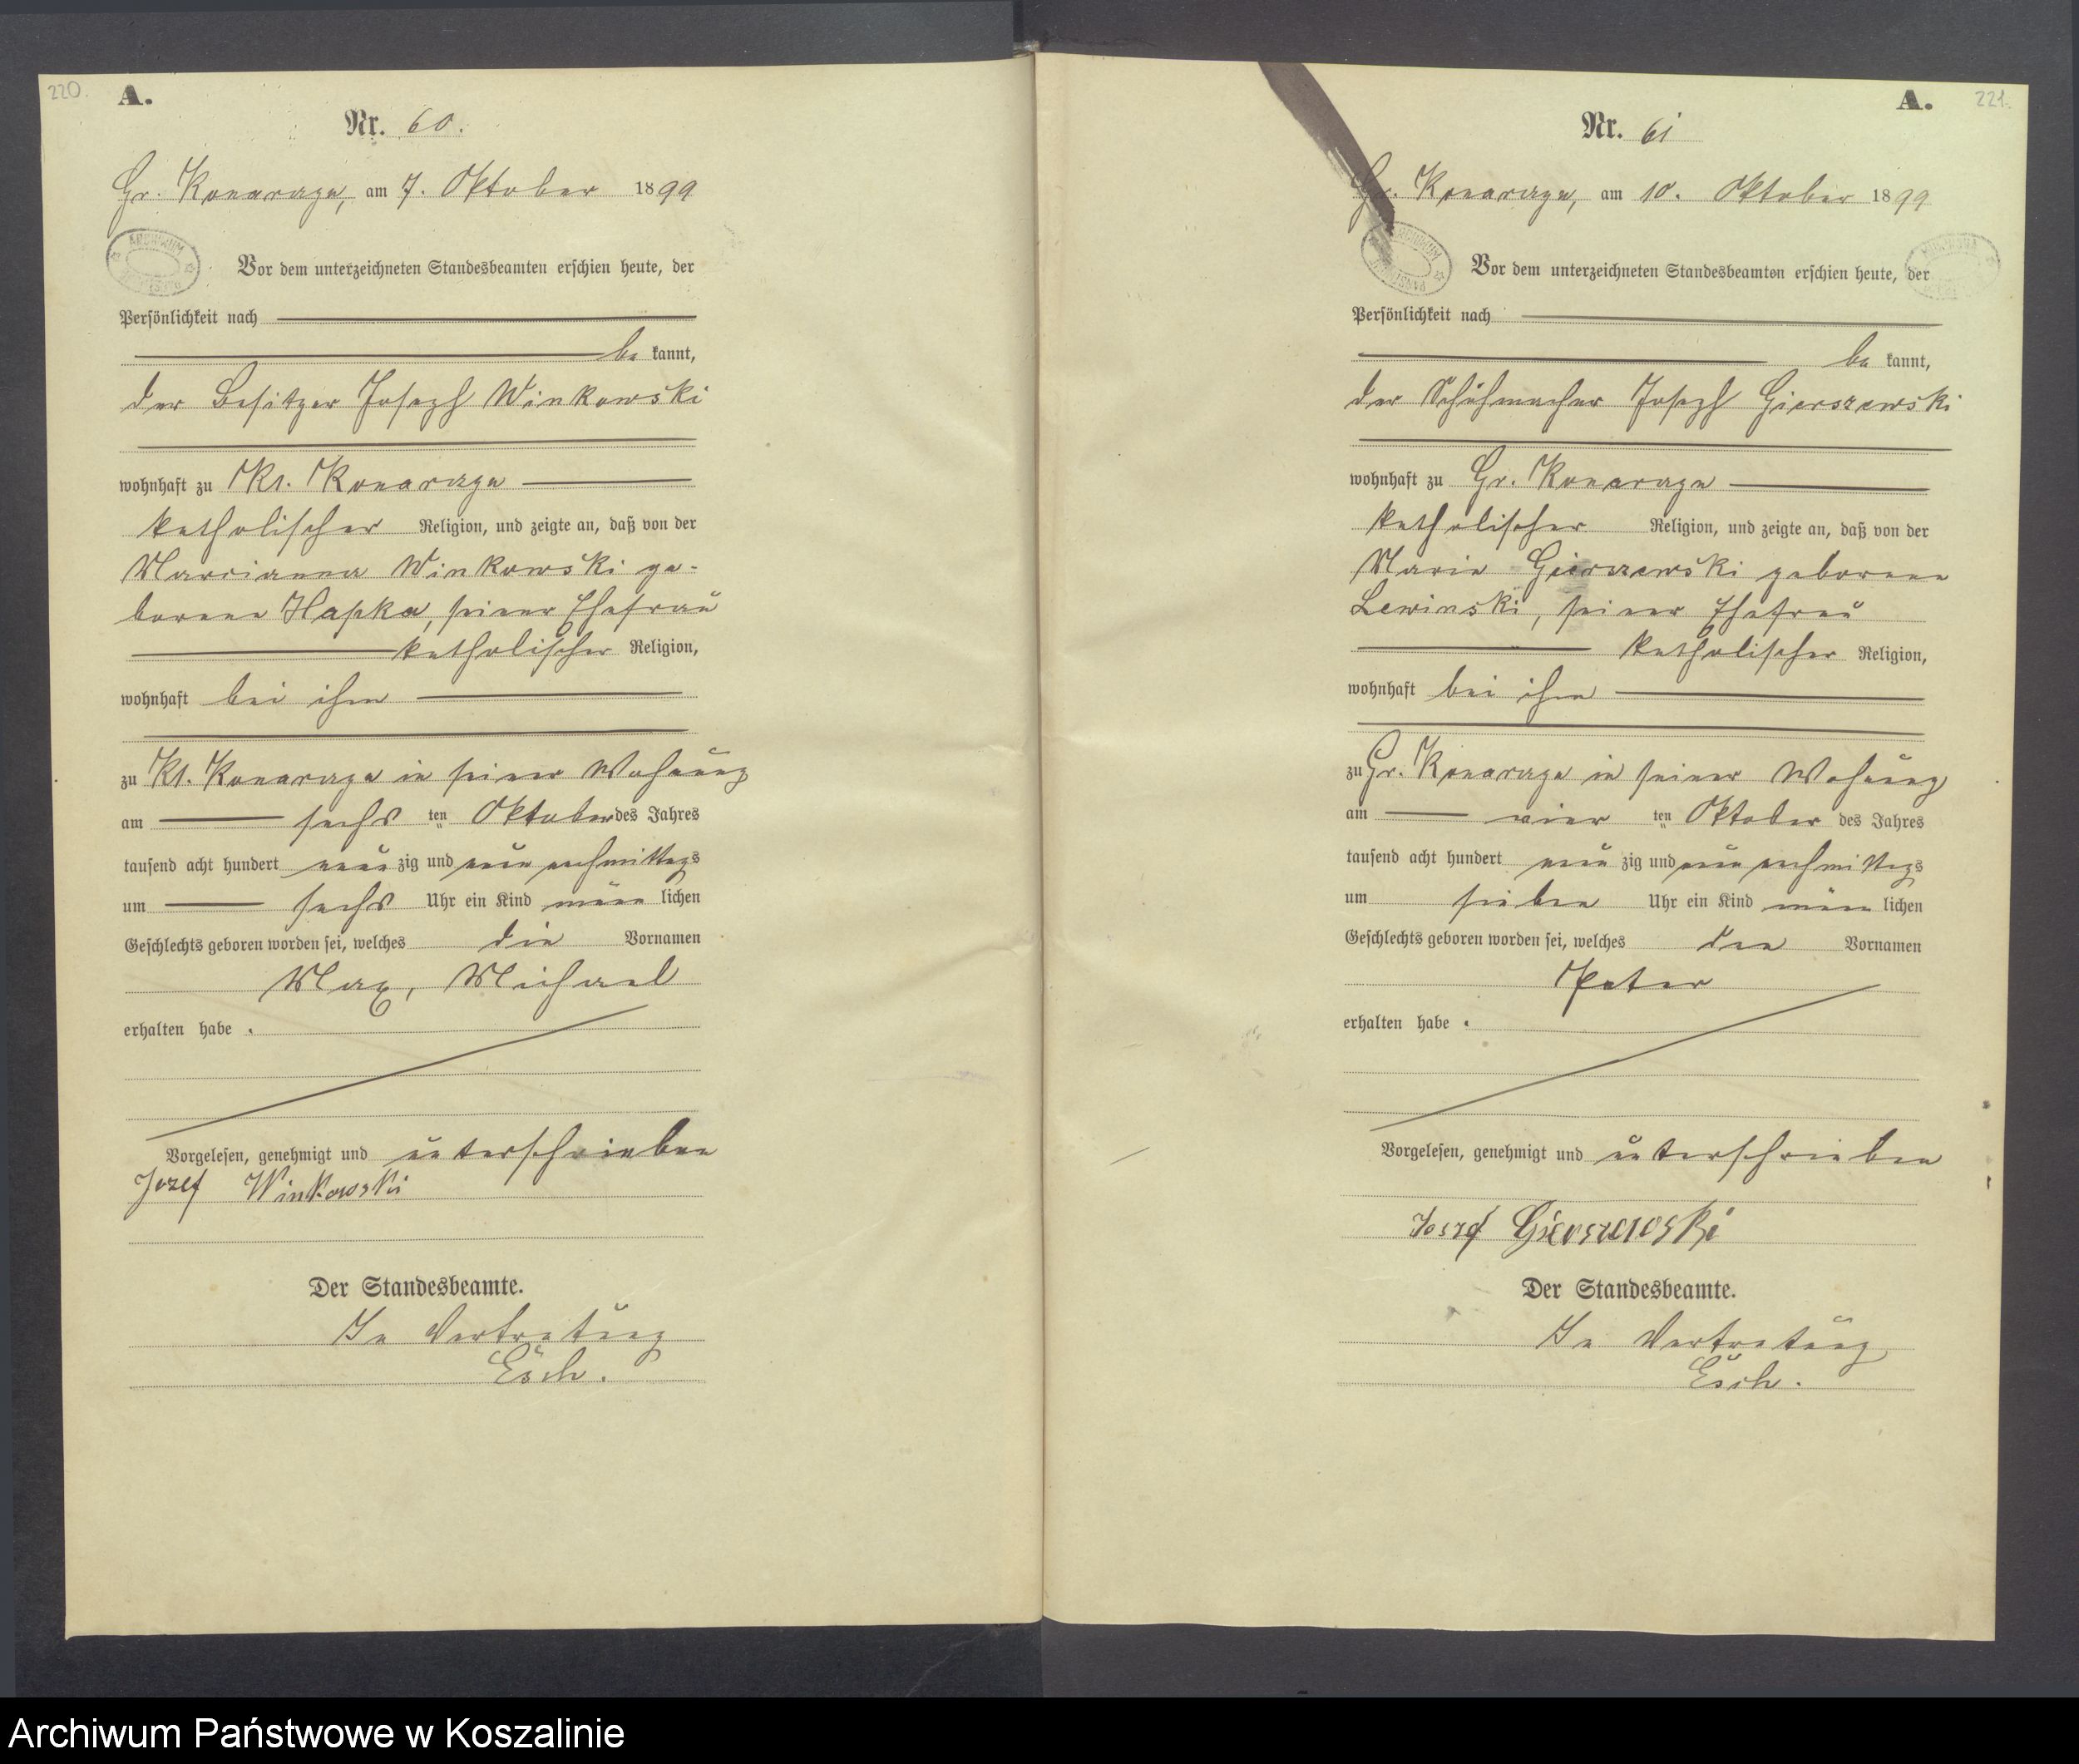 220.
A.
Nr. 60.
Gr. Konarzyn, am 7. Oktober 1899
ARCHIWUM
Vor dem unterzeichneten Standesbeamten erschien heute, der
Persönlichkeit nach
be kannt,
der Besitzer Joseph Winkowski
wohnhaft zu Kl. Konarzyn
katholischer Religion, und zeigte an, daß von der
Marianna Winkowski ge-
borene Hapka, seiner Ehefrau
katholischer Religion,
wohnhaft bei ihm
zu Kl. Konarzyn in seiner Wohnung
am sechs ten Oktober des Jahres
tausend acht hundert neun zig und neun nachmittags
um sechs Uhr ein Kind männ lichen
Geschlechts geboren worden sei, welches die Vornamen
Max, Michael
erhalten habe .
Vorgelesen, genehmigt und unterschrieben
Jozef Winkowski
Der Standesbeamte.
In Vertretung
Esch.
A.
221.
Nr. 61
Gr. Konarzyn, am 10. Oktober 1899
ARCHIWUM
Vor dem unterzeichneten Standesbeamten erschien heute, der
Persönlichkeit nach
be kannt,
der Schuhmacher Joseph Gierszewski
wohnhaft zu Gr. Konarzyn
katholischer Religion, und zeigte an, daß von der
Marie Gierszewski geborene
Lewinski, seiner Ehefrau
katholischer Religion,
wohnhaft bei ihm
zu Gr. Konarzyn in seiner Wohnung
am vier ten Oktober des Jahres
tausend acht hundert neun zig und neun nachmittags
um sieben Uhr ein Kind männ lichen
Geschlechts geboren worden sei, welches den Vornamen
Peter
erhalten habe .
Vorgelesen, genehmigt und unterschrieben
Josef Gierszewski
Der Standesbeamte.
In Vertretung
Esch.
Archiwum Państwowe w Koszalinie